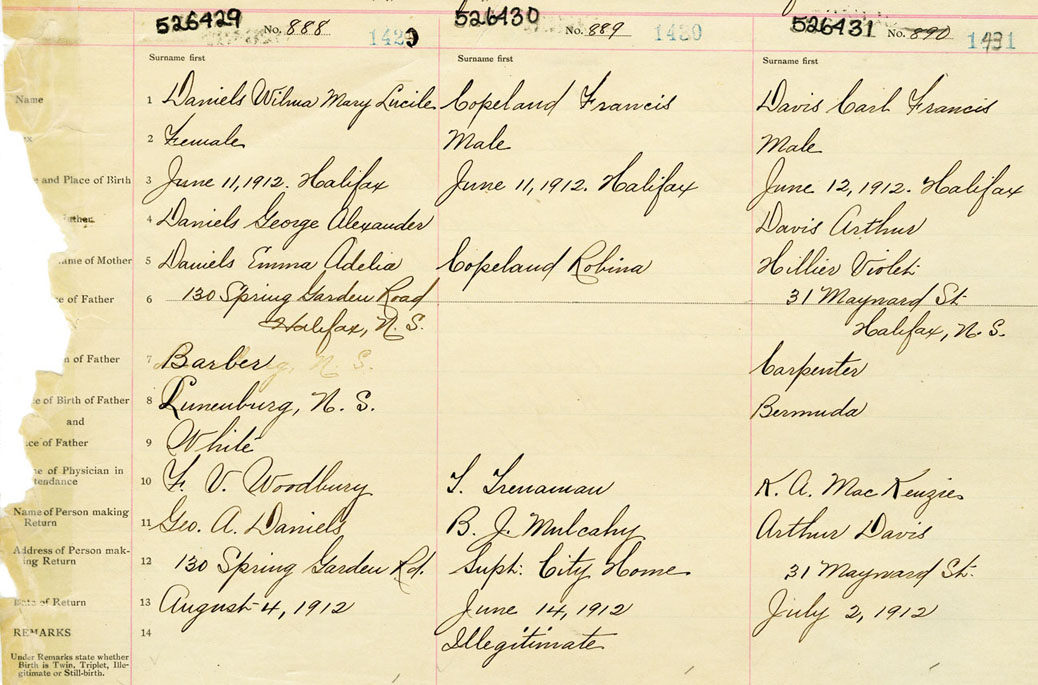 526429 No. 888 1429
526430 No. 889 1430
526431 No. 890 1431
Surname first Surname first Surname first
Name 1 Daniels Wilma Mary Lucile Copeland Francis Davis Carl Francis
2 Female Male Male
and Place of Birth 3 June 11, 1912. Halifax June 11, 1912. Halifax June 12, 1912. Halifax
4 Daniels George Alexander Davis Arthur
of Mother 5 Daniels Emma Adelia Copeland Robina Hillier Violet
of Father 6 130 Spring Garden Road 31 Maynard St
Halifax, N. S. Halifax, N. S.
of Father 7 Barber Carpenter
of Birth of Father 8 Lunenburg, N. S. Bermuda
and
of Father 9 White
of Physician in
10 F. V. Woodbury T. Trenaman K. A. MacKenzie
Name of Person making
Return 11 Geo. A. Daniels B. J. Mulcahy Arthur Davis
Address of Person mak-
ing Return 12 130 Spring Garden Rd. Supt. City Home 31 Maynard St.
Date of Return 13 August 4, 1912 June 14, 1912 July 2, 1912
REMARKS 14 Illegitimate
Under Remarks state whether
Birth is Twin, Triplet, Ille-
gitimate or Still-birth.